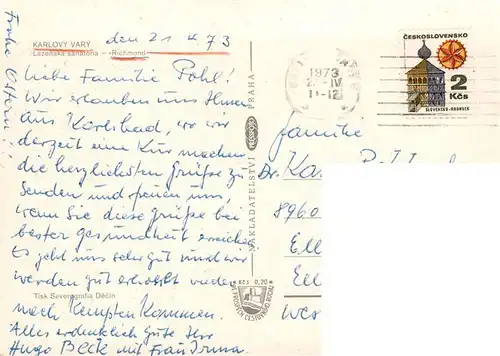 Frohe Ostern!
KARLOVY VARY
Lázeňská sanatoria - Richmond
den 21 4. 73
Liebe Familie Pohl!
Wir erlauben uns Ihnen
aus Karlsbad, wo wir
derzeit eine Kur machen
die herzlichsten Grüße zu
senden und freuen uns,
wenn Sie diese Grüße bei
bester gesundheit erreichen
Es geht uns sehr gut und wir
werden gut erholt wieder
nach Kempten Kommen.
Alles erdenklich Gute Ihr
Hugo Beck mit Frau Irma.
Tisk Severografia Děčín
NAKLADATELSTVÍ PRAHA
Kčs 0,20
ČESKOSLOVENSKO
2 Kčs
SLOVENSKO
1973
-IV
-12
Familie
Dr. Ka
8960
Ell